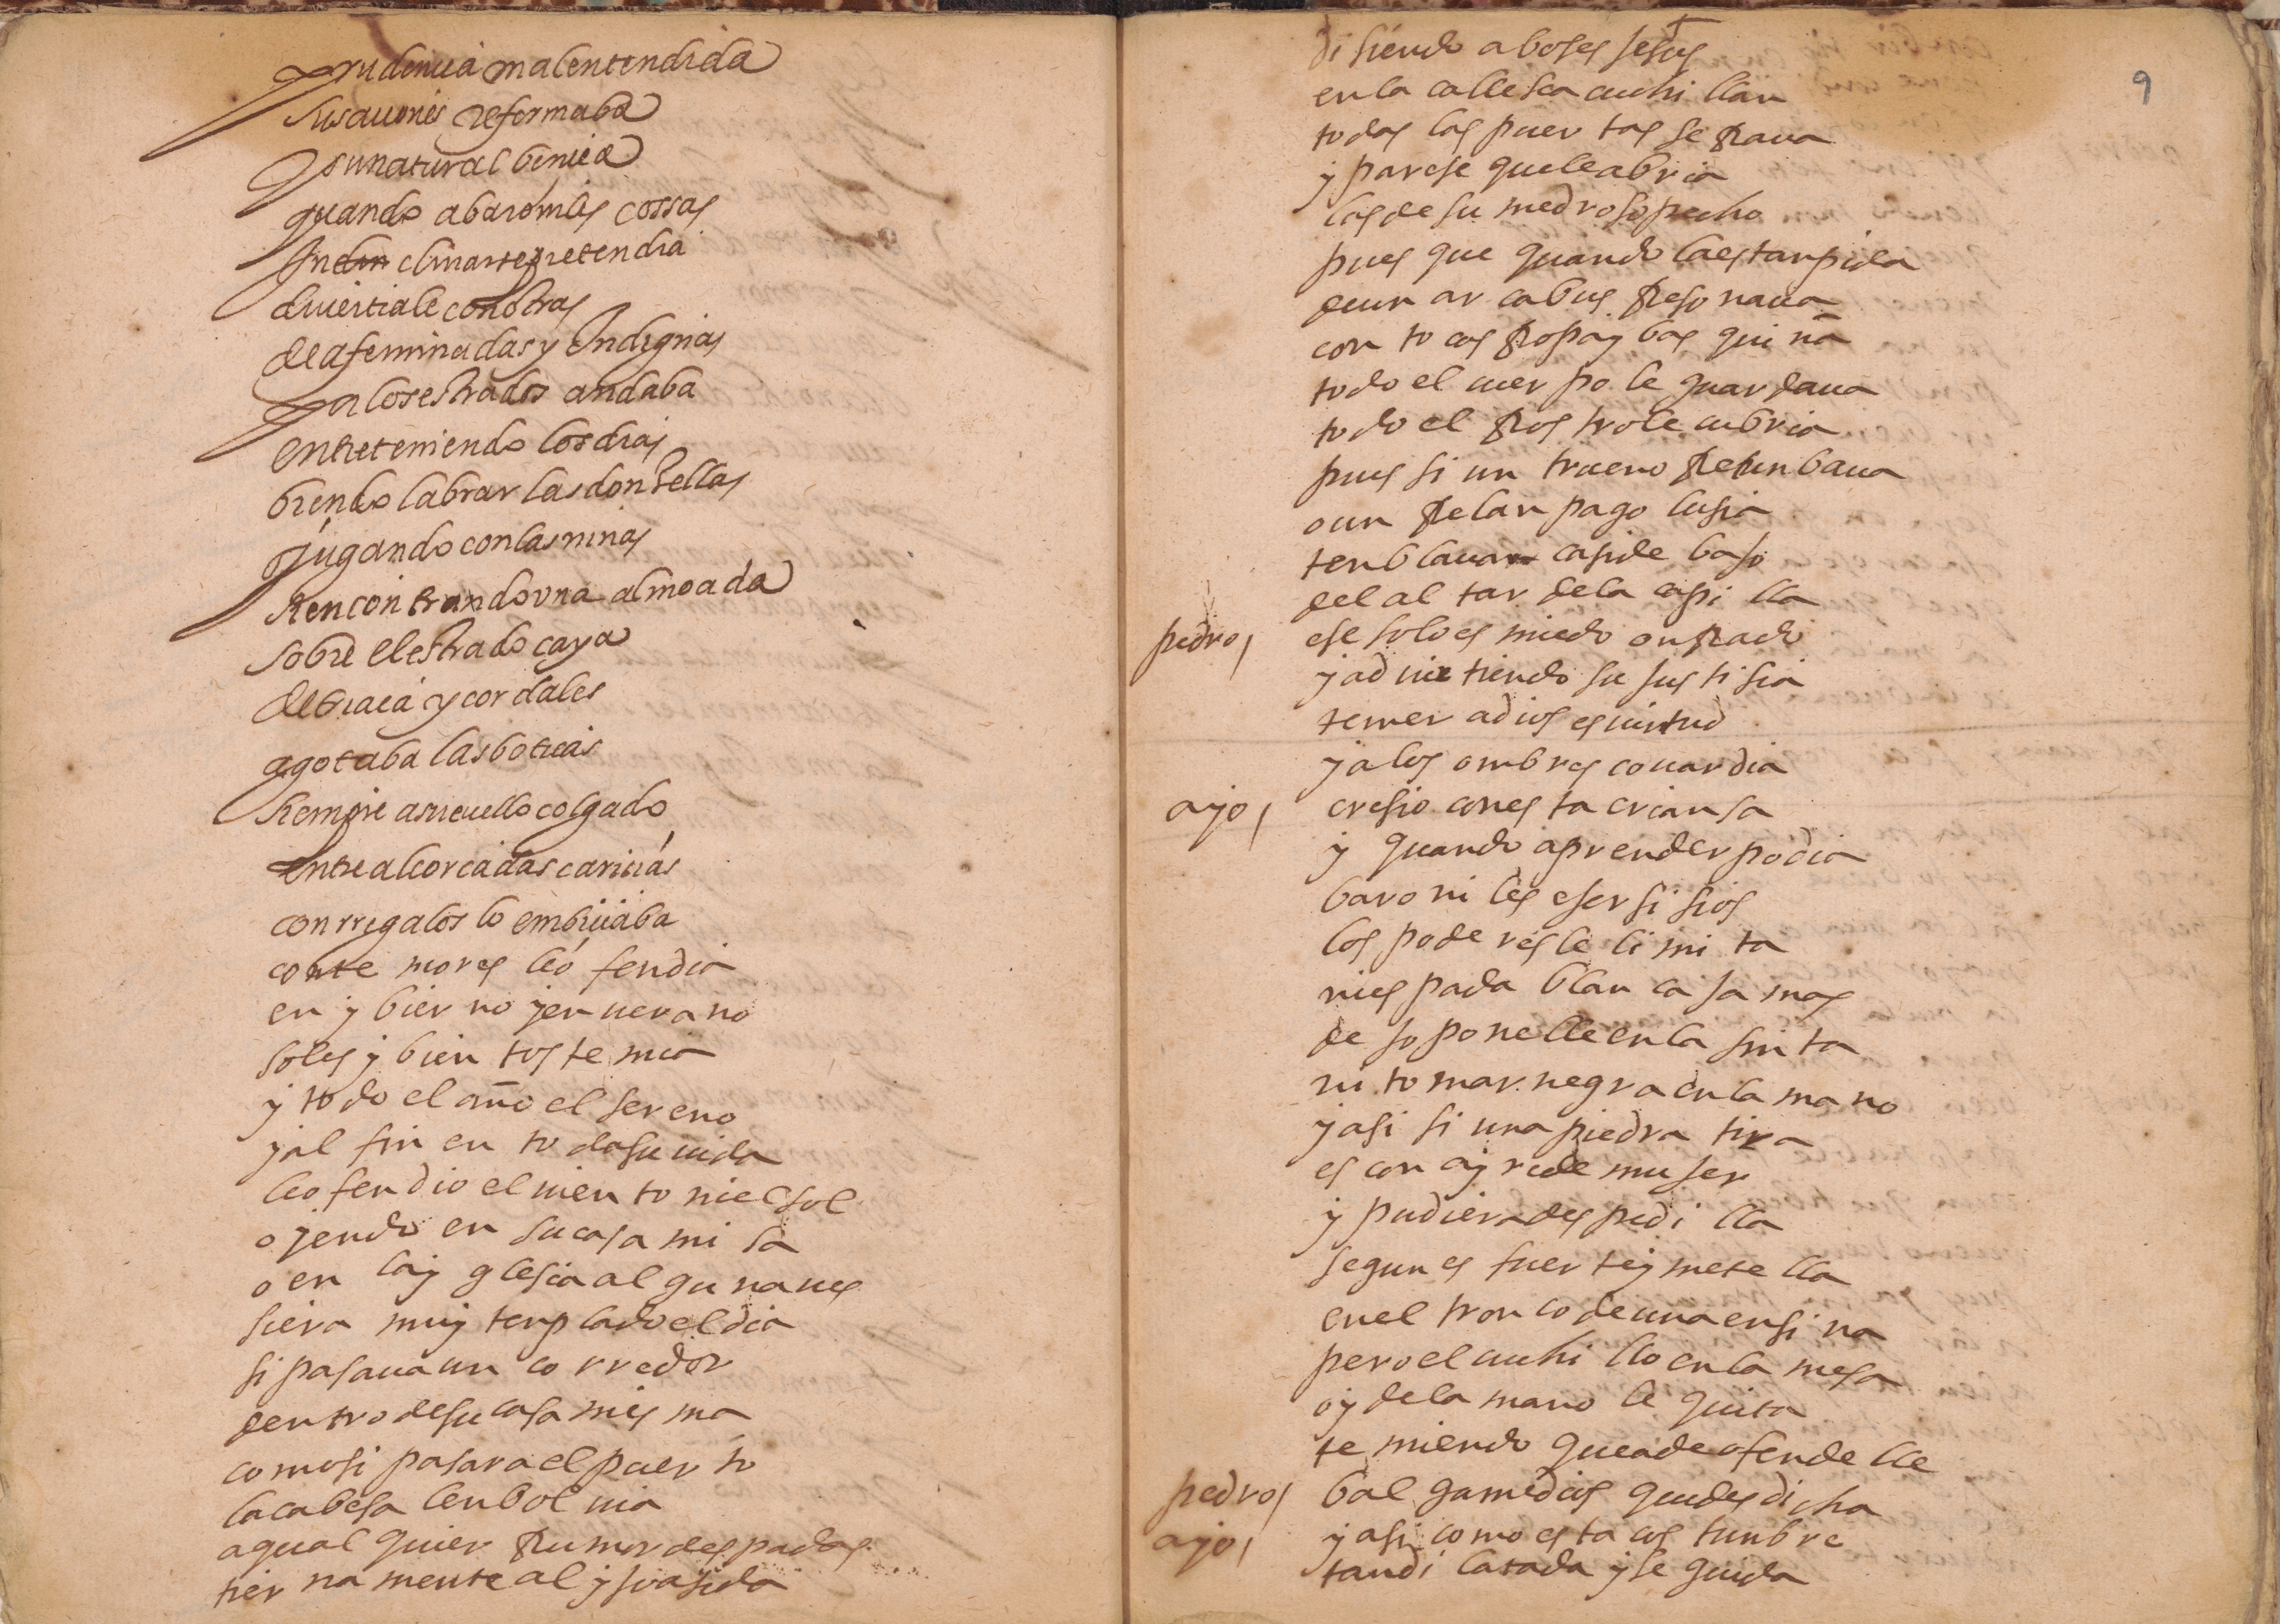 prudencia mal entendida
sus aciones reformaba
y su natural bencia
quando a baroniles cossas
yn clinarse pretendia
diuertiale con otras
de afeminadas y yndignas
ya los estrados andaba
entreteniendo los dias
biendo labrar las donzellas
jugando con las ninas
Rencontrando vna almoada
sobre el estrado caya
de triaca y cordales
agotaba las boticas
siempre a su cuello colgado
entre alcorcadas caricias
con rregalos lo embiciaba
con temores leo fendia
en y bier no y en uera no
soles y bien tos te mia
y to do el año el sereno
y al fin en to da su uida
leo fen dio el uien to ni el sol
o yendo en su casa mi sa
o en lay glesia al gu na ues
siera muy tenp lado el dia
si pasaua un co rredor
dentro de su casa mis ma
como si pasara el puer to
la cabesa len bol uia
a qual quier Rumor des padas
tier na mente al y so asida
di siendo a boses Jesus
en la calle sea cuchi llan
to das las puer tas se Raua
y parese que le abria
las de su medroso pecho
pues que quando la es tanpida
de un ar cabus Reso naua
con to cas Ropa y bas qui ña
todo el cuer po le guar daua
to do el Ros tro le cubria
pues si un trueno Retun baua
o un Relan pago lusia
ten blaua casi de baso
del al tar de la capi lla
pedro / ese solo es miedo on Rado
y ad uir tiendo su sus ti sia
temer a dios es uirtud
y a los ombres couardia
ayo / cresio con es ta crian sa
y quando aprender podia
baro ni les eser si sios
los pode res le li mi ta
ni es pada blan ca ja mas
de so ponelle en la sin ta
ni to mar negra en la ma no
y asi si una piedra tira
es con ay re de mu ser
y pudiera des pedi lla
segun es fuer te y mete lla
en el tron co de una ensi na
pero el cuchi llo en la mesa
oy de la mano le quita
te miendo que a de ofende lle
pedro / bal game dios que des di cha
ayo / y asi como es ta cos tunbre
tan di latada y se guida
9